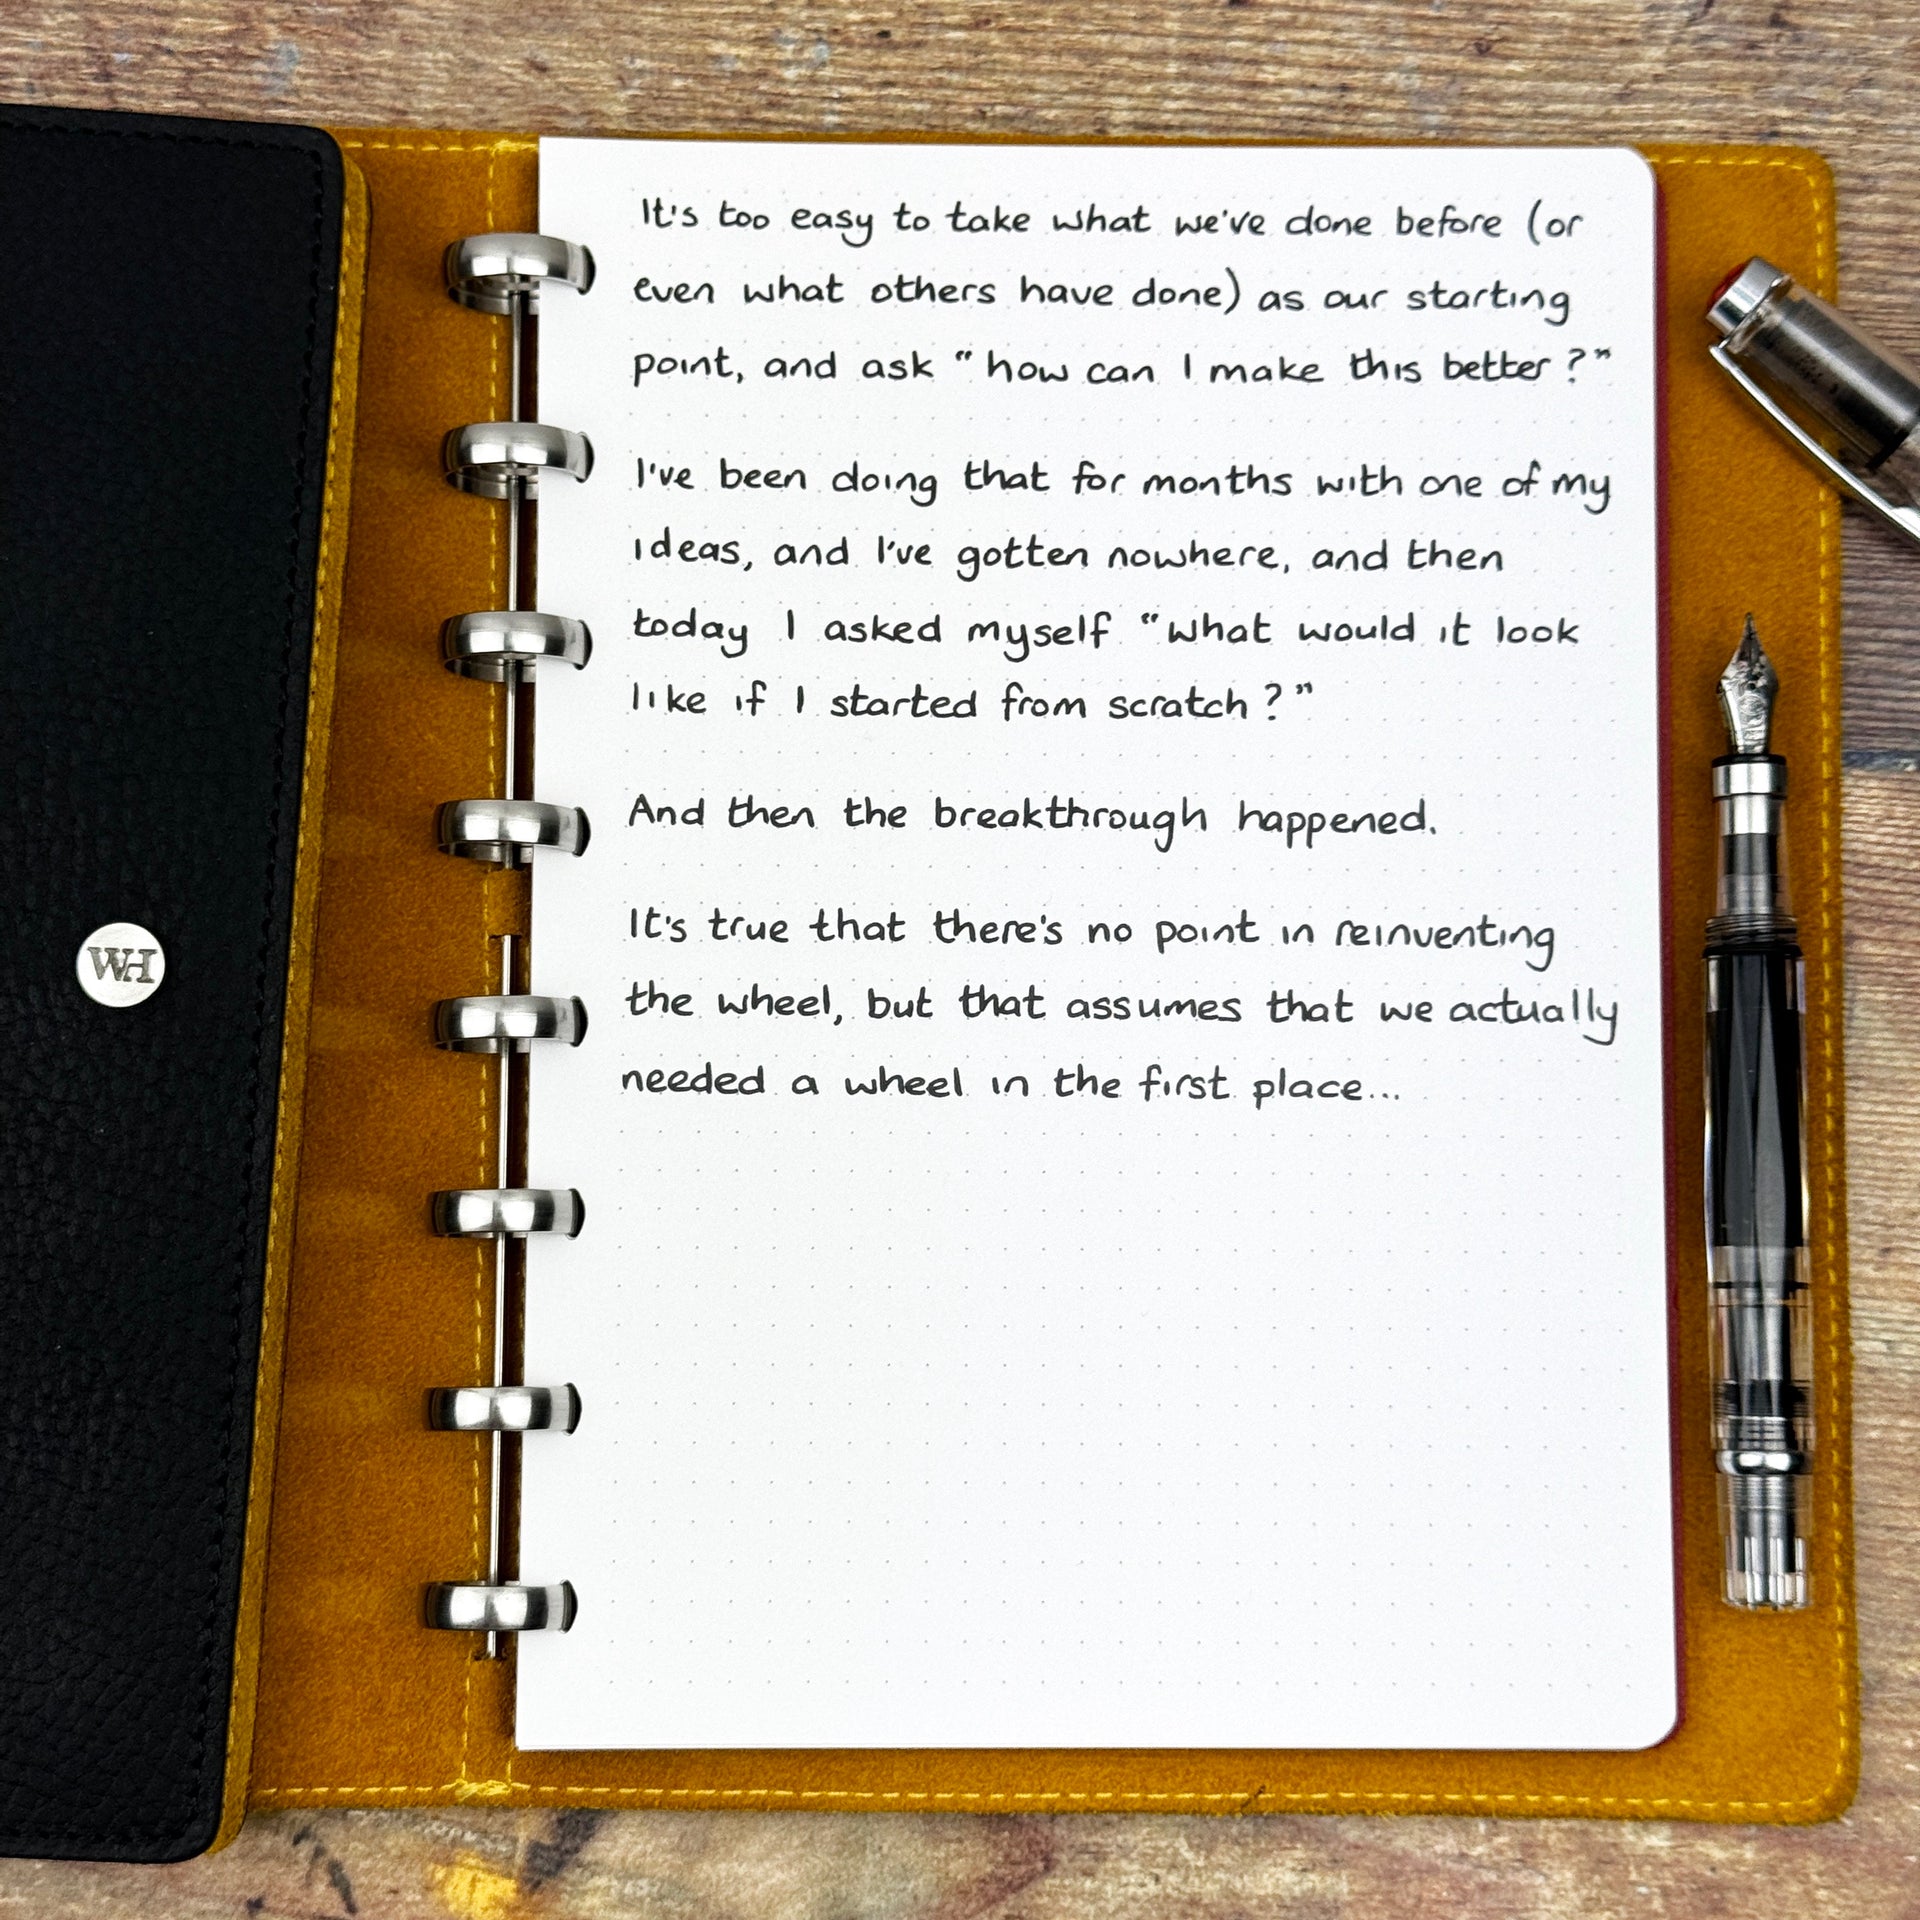 It's too easy to take what we've done before (or
even what others have done) as our starting
point, and ask "how can I make this better?"
I've been doing that for months with one of my
ideas, and I've gotten nowhere, and then
today I asked myself "what would it look
like if I started from scratch?"
And then the breakthrough happened.
It's true that there's no point in reinventing
the wheel, but that assumes that we actually
needed a wheel in the first place...
WH